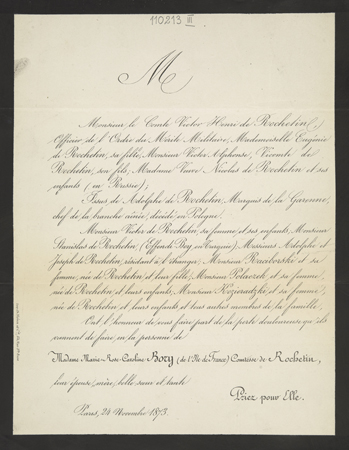 110213 III
M
Monsieur le Comte Victor Henri de Rochetin,
Officier de l'Ordre du Mérite Militaire, Mademoiselle Eugénie
de Rochetin, sa fille, Monsieur Victor Alphonse, Vicomte de
Rochetin, son fils, Madame Veuve Nicolas de Rochetin et ses
enfants (en Russie);
Issus de Adolphe de Rochetin, Marquis de la Garenne,
chef de la branche aînée, décédé en Pologne.
Monsieur Victor de Rochetin, sa femme et ses enfants, Monsieur
Stanislas de Rochetin, (Effendi Bey en Turquie), Messieurs Adolphe et
Joseph de Rochetin, résidant à l'étranger, Monsieur et sa
femme, née de Rochetin, et leur fille, Monsieur et sa femme
née de Rochetin, et leurs enfants, Monsieur et sa femme,
née de Rochetin, et leurs enfants et tous autres membres de la famille,
Ont l'honneur de vous faire part de la perte douloureuse qu'ils
viennent de faire en la personne de
Madame Marie-Rose-Caroline Bory (de l'Ile de France) Comtesse de Rochetin,
leur épouse, mère, belle sœur et tante
Priez pour Elle.
Paris, 24 Novembre 1873.